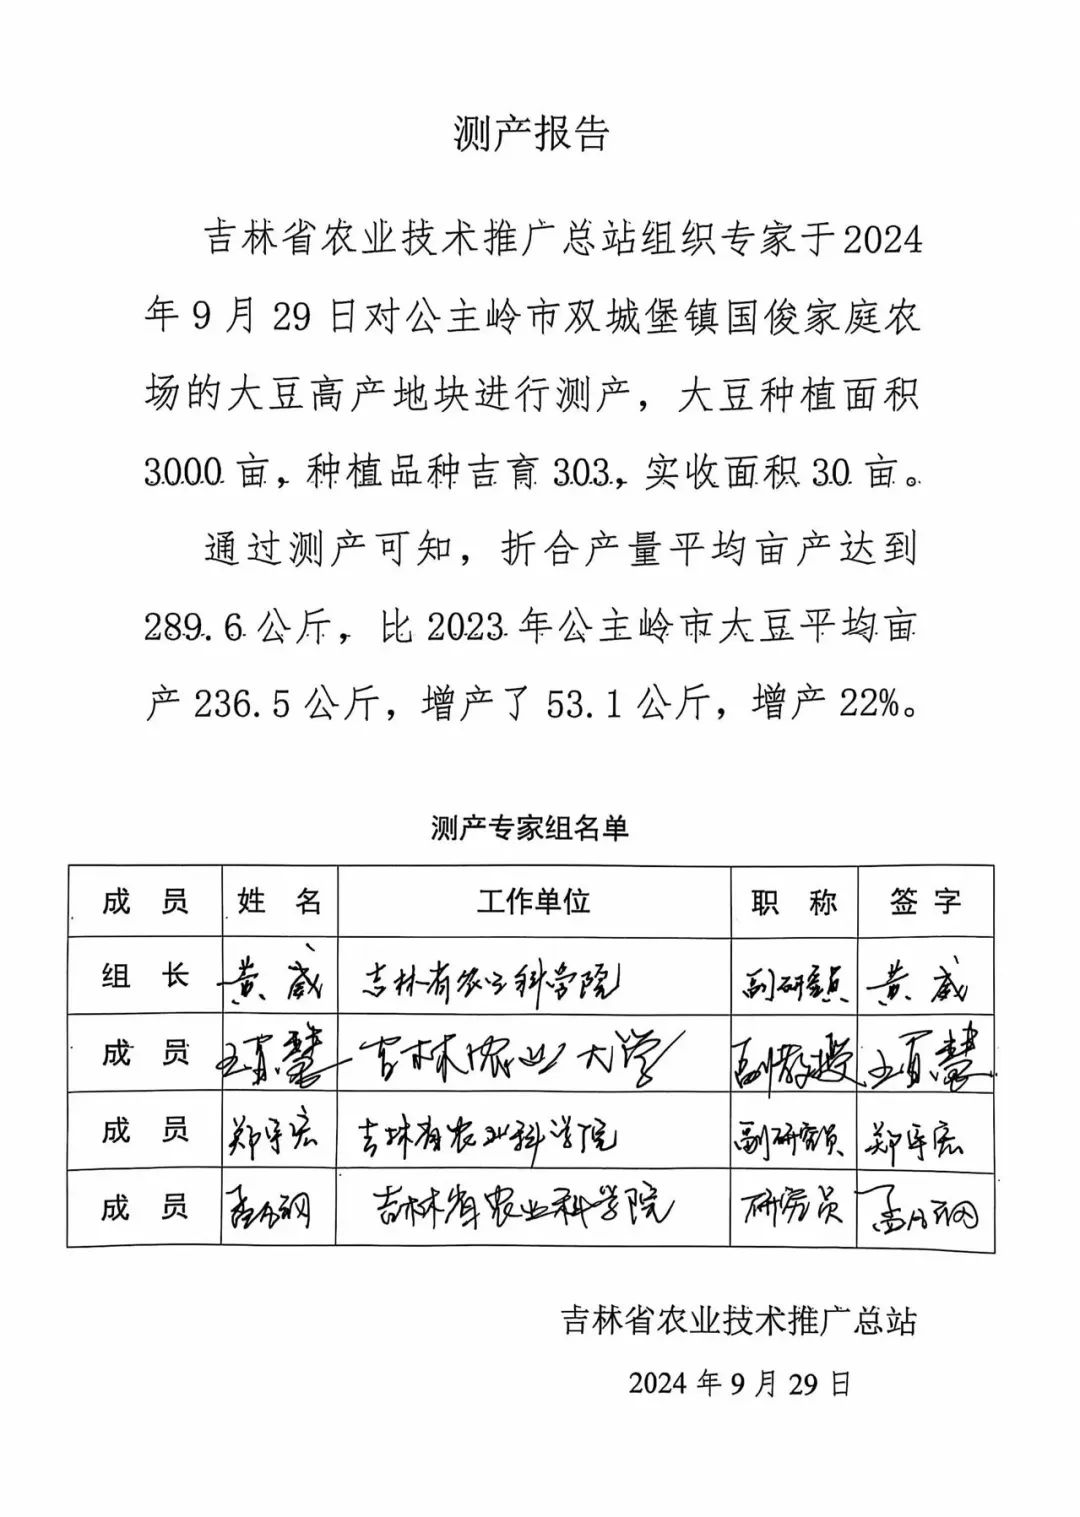 测产报告
吉林省农业技术推广总站组织专家于2024
年9月29日对公主岭市双城堡镇国俊家庭农
场的大豆高产地块进行测产，大豆种植面积
3000亩，种植品种吉育303，实收面积30亩。
通过测产可知，折合产量平均亩产达到
289.6公斤，比2023年公主岭市大豆平均亩
产236.5公斤，增产了53.1公斤，增产22%。
测产专家组名单
成 员 姓 名 工作单位 职 称 签 字
组 长 黄威 吉林省农业科学院 副研究员 黄威
成 员 吉林农业大学 副教授
成 员 郑宇宏 吉林省农业科学院 副研究员 郑宇宏
成 员 吉林省农业科学院 研究员
吉林省农业技术推广总站
2024年9月29日